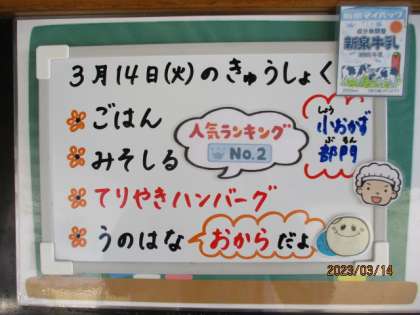 3月14日(火)のきゅうしょく
新泉牛乳
ごはん
みそしる
てりやきハンバーグ
うのはな
おからだよ
人気ランキング
No.2
しょう
小おかず
ぶもん
部門
2023/03/14